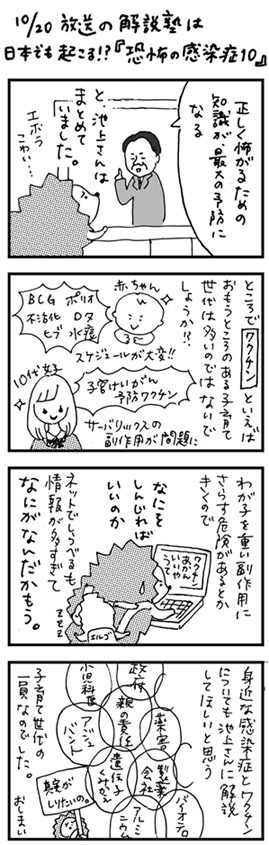 10/20 放送の解説塾は
日本でも起こる!?『恐怖の感染症10』
正しく怖がるための
知識が最大の予防に
なる
と、池上さんは
まとめて
いました。
エボラ
こわい…
ところで ワクチン といえば
おもうところのある子育て
世代は多いのではないで
しょうか!?
赤ちゃん
BCG ポリオ
不活化 ロタ
ヒブ 水痘
スケジュールが大変!!
10代女子
子宮けいがん
予防ワクチン
サーバリックスの
副作用が問題に
わが子を重い副作用に
さらす危険があるとか
きくので
なにを
しんじれば
いいのか
ネットでしらべるも
情報が多すぎて
なにがなんだかもう。
ワクチン
あかん
いいや
いい
エルゴ
ZZZ
身近な感染症とワクチン
についても池上さんに解説
してほしいと思う
子育て世代の
一員なのでした。
おしまい
政府
小児科医
親の責任
薬害
アジュ
バント
遺伝子
くみかえ
製薬
会社
アルミ
ニウム
バイオテロ
真実が
しりたいの。